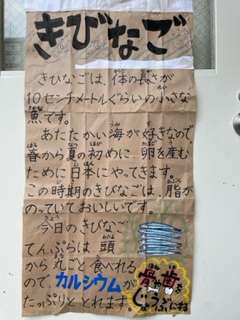 きびなご
きびなごは、体の長さが
10センチメートルぐらいの小さな
魚です。
あたたかい海が好きなので、
春から夏の初めに卵を産む
ために日本にやってきます。
この時期のきびなごは、脂が
のっていておいしいです。
今日のきびなご
てんぷらは頭
から丸ごと食べれる
ので、カルシウムが
たっぷりととれます。
骨や歯を
じょうぶにね